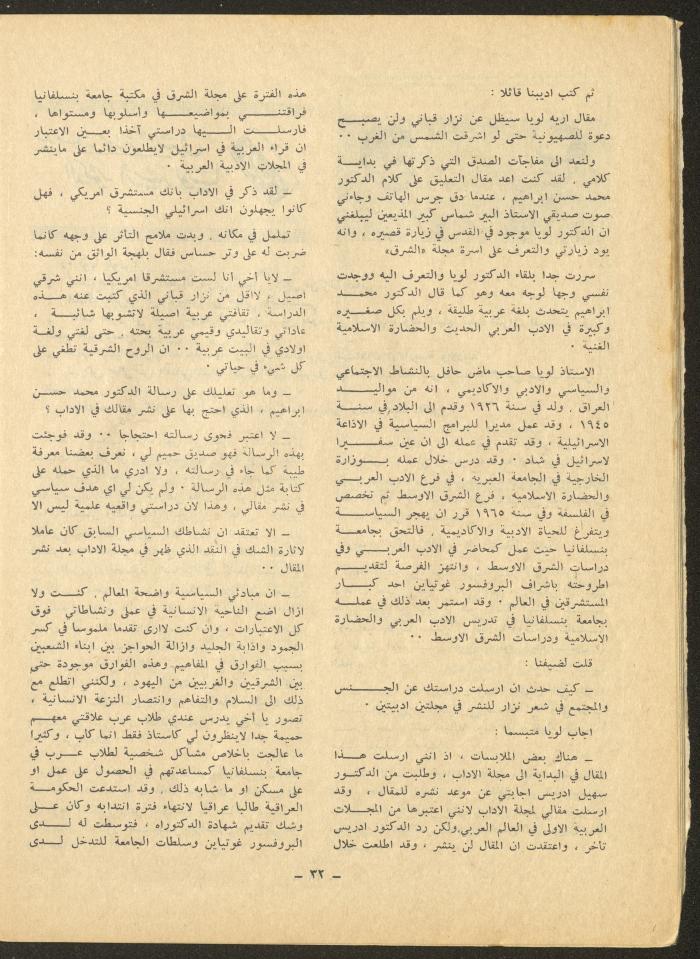 ثم كتب اديبنا قائلا :
مقال اريه لويا سيظل عن نزار قباني ولن يصبح
دعوة للصهيونية حتى لو اشرقت الشمس من الغرب ٠٠
ولنعد الى مفاجآت الصدق التي ذكرتها في بداية
كلامي . لقد كنت اعد مقال التعليق على كلام الدكتور
محمد حسن ابراهيم ، عندما دق جرس الهاتف وجاءني
صوت صديقي الاستاذ البير شماس كبير المذيعين ليبلغني
ان الدكتور لويا موجود في القدس في زيارة قصيره ، وانه
يود زيارتي والتعرف على اسرة مجلة «الشرق»
سررت جدا بلقاء الدكتور لويا والتعرف اليه ووجدت
نفسي وجها لوجه معه وهو كما قال الدكتور محمد
ابراهيم يتحدث بلغة عربية طليقة ، ويلم بكل صغيره
وكبيرة في الادب العربي الحديث والحضارة الاسلامية
الغنية ٠
الاستاذ لويا صاحب ماض حافل بالنشاط الاجتماعي
والسياسي والادبي والاكاديمي ، انه من مواليد
العراق . ولد في سنة ١٩٢٦ وقدم الى البلاد في سنة
١٩٤٥ ، وقد عمل مديرا للبرامج السياسية في الاذاعة
الاسرائيلية ، وقد تقدم في عمله الى ان عين سفيرا
لاسرائيل في شاد ٠ وقد درس خلال عمله بوزارة
الخارجية في الجامعة العبريه ، في فرع الادب العربي
والحضارة الاسلاميه ، فرع الشرق الاوسط ثم تخصص
في الفلسفة وفي سنة ١٩٦٥ قرر ان يهجر السياسة
ويتفرغ للحياة الادبية والاكاديمية . فالتحق بجامعة
بنسلفانيا حيث عمل كمحاضر في الادب العربي وفي
دراسات الشرق الاوسط ، وانتهز الفرصة لتقديم
اطروحته باشراف البروفسور غوتياين احد كبار
المستشرقين في العالم ٠ وقد استمر بعد ذلك في عمله
بجامعة بنسلفانيا في تدريس الادب العربي والحضارة
الاسلامية ودراسات الشرق الاوسط ٠٠
قلت لضيفنا :
ــ كيف حدث ان ارسلت دراستك عن الجنس
والمجتمع في شعر نزار للنشر في مجلتين ادبيتين ٠
اجاب لويا متبسما :
ــ هناك بعض الملابسات ، اذ انني ارسلت هذا
المقال في البداية الى مجلة الاداب ، وطلبت من الدكتور
سهيل ادريس اجابتي عن موعد نشره للمقال ، وقد
ارسلت مقالي لمجلة الاداب لانني اعتبرها من المجلات
العربية الاولى في العالم العربي.ولكن رد الدكتور ادريس
تأخر ، واعتقدت ان المقال لن ينشر ، وقد اطلعت خلال
هذه الفترة على مجلة الشرق في مكتبة جامعة بنسلفانيا
فراقتني بمواضيعها وأسلوبها ومستواها ،
فارسلت اليها دراستي آخذا بعين الاعتبار
ان قراء العربية في اسرائيل لايطلعون دائما على ماينشر
في المجلات الادبية العربية ٠
ــ لقد ذكر في الاداب بانك مستشرق امريكي ، فهل
كانوا يجهلون انك اسرائيلي الجنسية ؟
تململ في مكانه . وبدت ملامح التأثر على وجهه كانما
ضربت له على وتر حساس فقال بلهجة الواثق من نفسه:
ــ لايا أخي أنا لست مستشرقا امريكيا ، انني شرقي
اصيل ، لااقل من نزار قباني الذي كتبت عنه هذه
الدراسة . ثقافتي عربية اصيلة لاتشوبها شائبة ،
عاداتي وتقاليدي وقيمي عربية بحته . حتى لغتي ولغة
اولادي في البيت عربية ٠٠ ان الروح الشرقية تطغي على
كل شيء في حياتي ٠
ــ وما هو تعليلك على رسالة الدكتور محمد حسن
ابراهيم ، الذي احتج بها على نشر مقالك في الاداب ؟
ــ لا اعتبر فحوى رسالته احتجاجا ٠٠ وقد فوجئت
بهذه الرسالة فهو صديق حميم لي ، نعرف بعضنا معرفة
طيبة كما جاء في رسالته . ولا ادري ما الذي حمله على
كتابة مثل هذه الرسالة ٠ ولم يكن لي اي هدف سياسي
في نشر مقالي ، وهذا لان دراستي واقعيه علمية ليس الا
ــ الا تعتقد ان نشاطك السياسي السابق كان عاملا
لاثارة الشك في النقد الذي ظهر في مجلة الاداب بعد نشر
المقال ٠٠
ــ ان مبادئي السياسية واضحة المعالم . كنت ولا
ازال اضع الناحية الانسانية في عملي ونشاطاتي فوق
كل الاعتبارات ، وان كنت لاارى تقدما ملموسا في كسر
الجمود واذابة الجليد وازالة الحواجز بين ابناء الشعبين
بسبب الفوارق في المفاهيم وهذه الفوارق موجودة حتى
بين الشرقيين والغربيين من اليهود ، ولكنني اتطلع مع
ذلك الى السلام والتفاهم وانتصار النزعة الانسانية ،
تصور يا أخي يدرس عندي طلاب عرب علاقتي معهم
حميمة جدا لاينظرون لي كاستاذ فقط انما كاب ، وكثيرا
ما عالجت باخلاص مشاكل شخصية لطلاب عرب في
جامعة بنسلفانيا كمساعدتهم في الحصول على عمل او
على مسكن او ما شابه ذلك . وقد استدعت الحكومة
العراقية طالبا عراقيا لانتهاء فترة انتدابه وكان على
وشك تقديم شهادة الدكتوراه ، فتوسطت له لدى
البروفسور غوتياين وسلطات الجامعة للتدخل لدى
ــ ٣٢ ــ